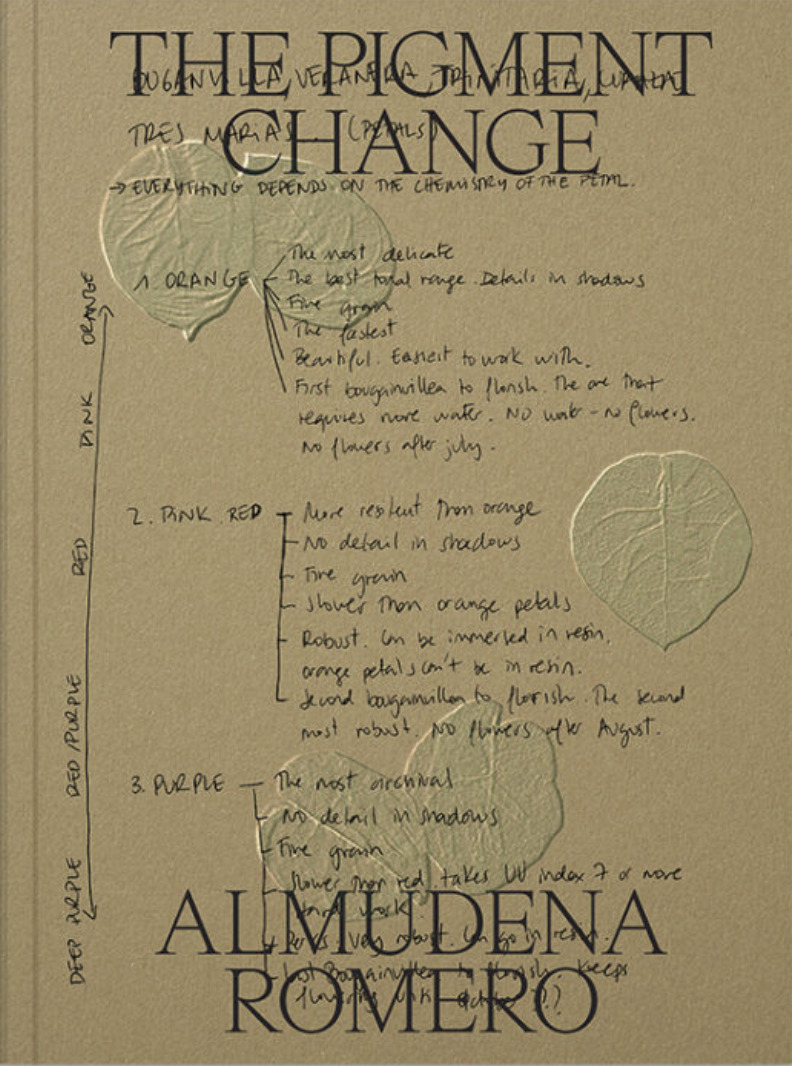 THE PIGMENT
BUGANVILLA, VERANERA, TRINITARIA,
CHANGE
TRES MARIAS. (PETALS)
→ EVERYTHING DEPENDS ON THE CHEMISTRY OF THE PETAL.
1 ORANGE
The most delicate
The best tonal range. Details in shadows
Fine grain
The fastest
Beautiful. Easiest to work with.
First bougainvillea to florish. The one that
requires more water. NO water - no flowers.
No flowers after july.
2. PINK RED
More resilient than orange
NO detail in shadows
Fine grain
Slower than orange petals
Robust. Can be immersed in resin.
orange petals can't be in resin.
Second bougainvillea to florish. The second
most robust. NO flowers after August.
3. PURPLE
The most archival
NO detail in shadows
Fine grain
Slower than red. takes UV index 7 or more
work.
Very robust. Can go in resin.
Last Bougainvillea to florish. Keeps
flowering until October (?)
ORANGE
PINK
RED
RED/PURPLE
DEEP PURPLE
ALMUDENA
ROMERO